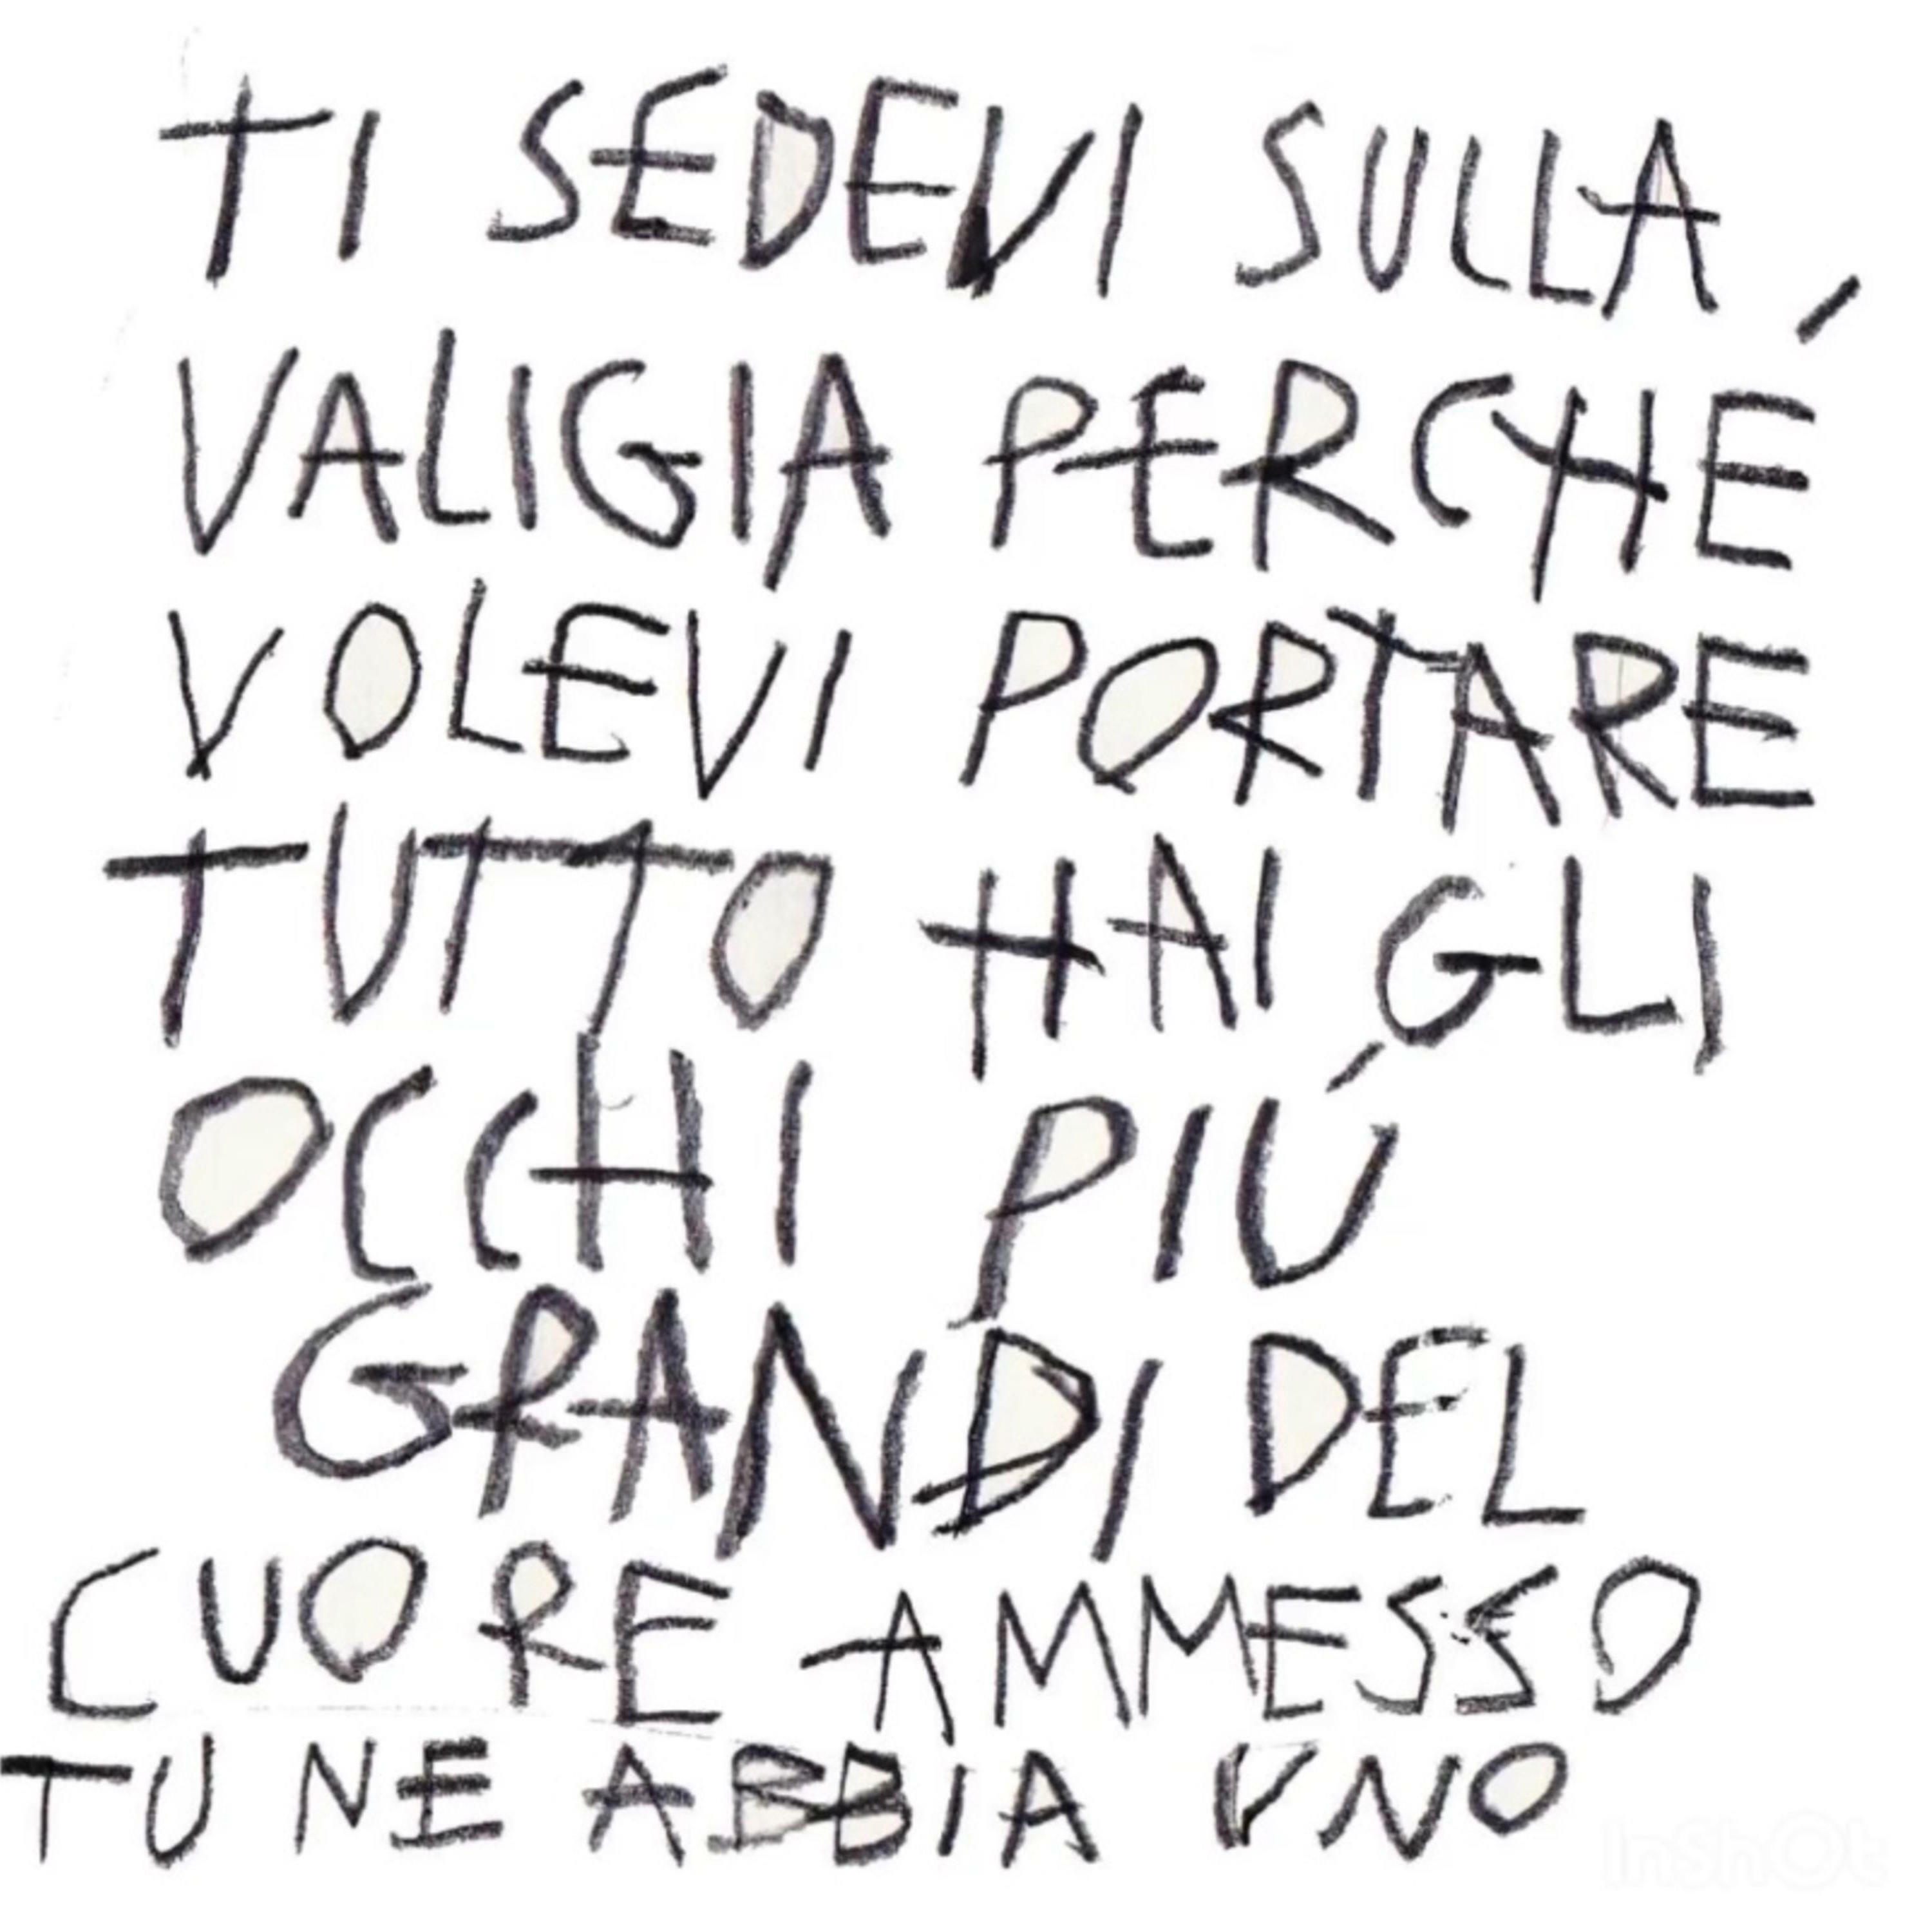 TI SEDEVI SULLA
VALIGIA PERCHÉ
VOLEVI PORTARE
TUTTO HAI GLI
OCCHI PIÚ
GRANDI DEL
CUORE AMMESSO
TU NE ABBIA UNO
InShOt